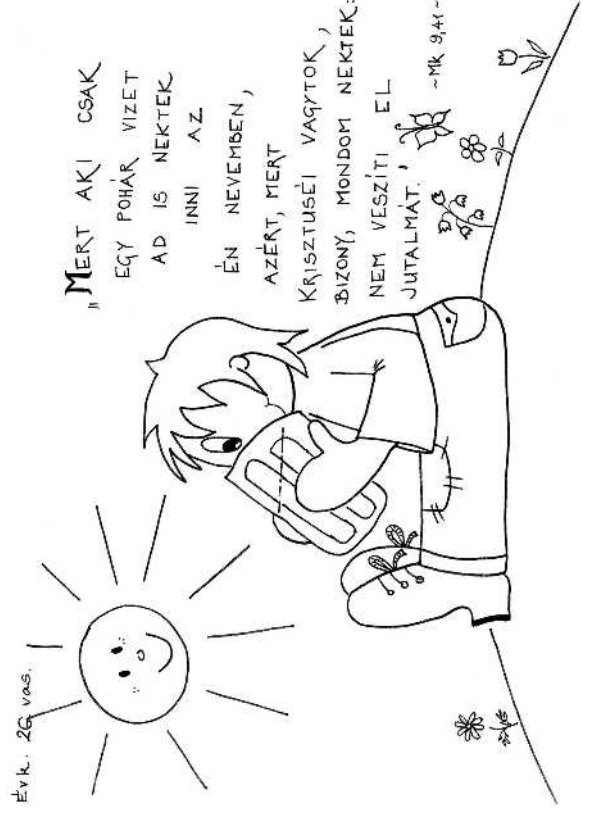 Évk. 26. vas.
„MERT AKI CSAK
EGY POHÁR VIZET
AD IS NEKTEK
INNI AZ
ÉN NEVEMBEN,
AZÉRT, MERT
KRISZTUSÉI VAGYTOK,
BIZONY, MONDOM NEKTEK:
NEM VESZÍTI EL
JUTALMÁT.”
~Mk 9,41~